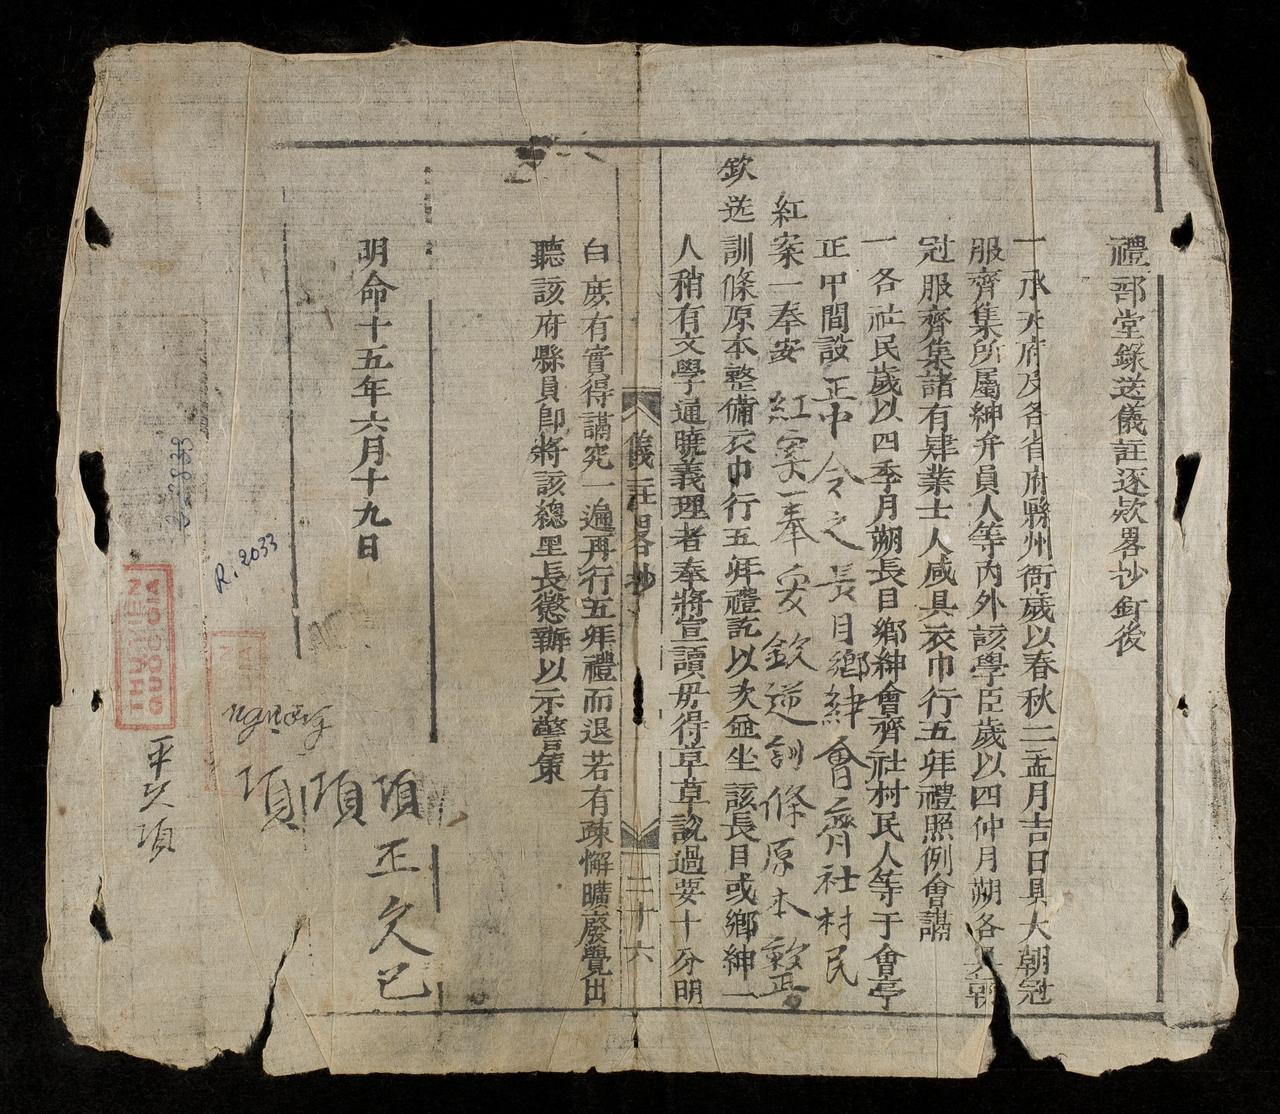 禮部堂錄送儀註逐款畧抄釘後
一承天府及各省府縣州衙歲以春秋二孟月吉日具大朝冠
服齊集所屬紳弁員人等內外該學臣歲以四仲月朔各具朝
冠服齊集諸有肄業士人咸具衣巾行五拜禮照例會講
一各社民歲以四季月朔長目鄉紳會齊社村民人等于會亭
正甲間設正中令之長目鄉紳會齊社村民
紅案一奉安紅案一奉安欽送訓條原本整
欽送訓條原本整備衣巾行五拜禮訖以次並坐該長目或鄉紳一
人稍有文學通曉義理者奉將宣讀毋得草草說過要十分明
儀註畧抄
二十六
白庶有實得講究一遍再行五拜禮而退若有疎懈曠廢覺出
聽該府縣員即將該總里長懲辦以示警策
明命十五年六月十九日
項正久已
項
項
平久項
R.2033
THU VIEN
QUOC GIA